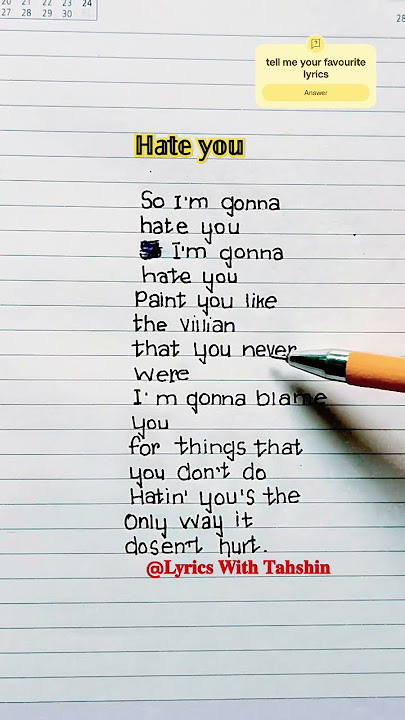 20 21 22 23 24
27 28 29 30
28
tell me your favourite
lyrics
Answer
Hate you
So I'm gonna
hate you
I'm gonna
hate you
Paint you like
the villian
that you never
were
I'm gonna blame
you
for things that
you don't do
Hatin' you's the
Only way it
dosen't hurt.
@Lyrics With Tahshin